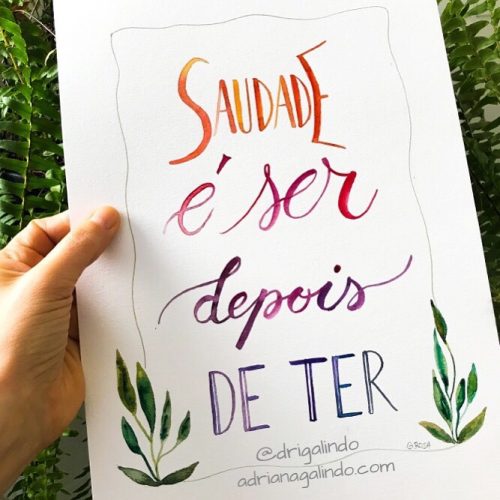 SAUDADE
é ser
depois
DE TER
G.ROSA
@drigalindo
adrianagalindo.com